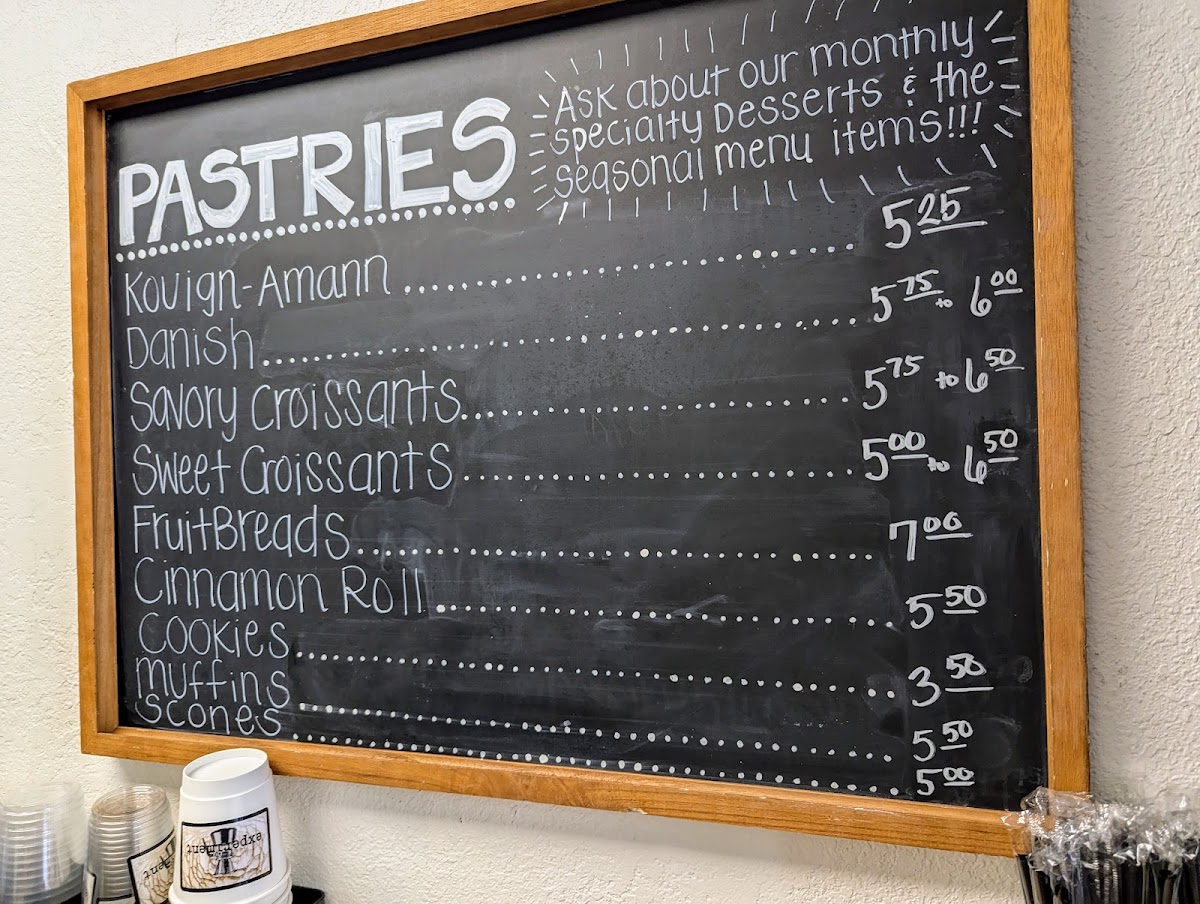 PASTRIES
Ask about our monthly
specialty Desserts & the
seasonal menu items!!!
Kouign-Amann 5.25
Danish 5.75 to 6.00
Savory Croissants 5.75 to 6.50
Sweet Croissants 5.00 to 6.50
FruitBreads 7.00
Cinnamon Roll 5.50
Cookies 3.50
Muffins 5.50
Scones 5.00
experiment